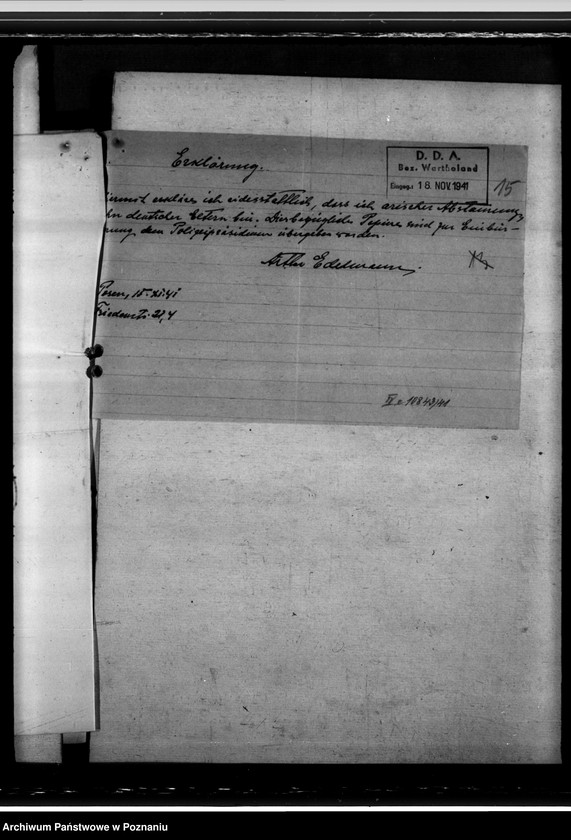 Erklärung.
D. D. A.
Bez. Wartheland
Eingeg.: 18. NOV. 1941
15
iermit erkläre ich eidesstattlich, dass ich arischer Abstammung,
deutscher Eltern bin. Diesbezügliche Papiere sind zur Einbür-
rung dem Polizeipräsidium übergeben worden.
Arthur Edelmann.
Posen, 15.XI.41
Friedenstr. 21,4
Archiwum Państwowe w Poznaniu